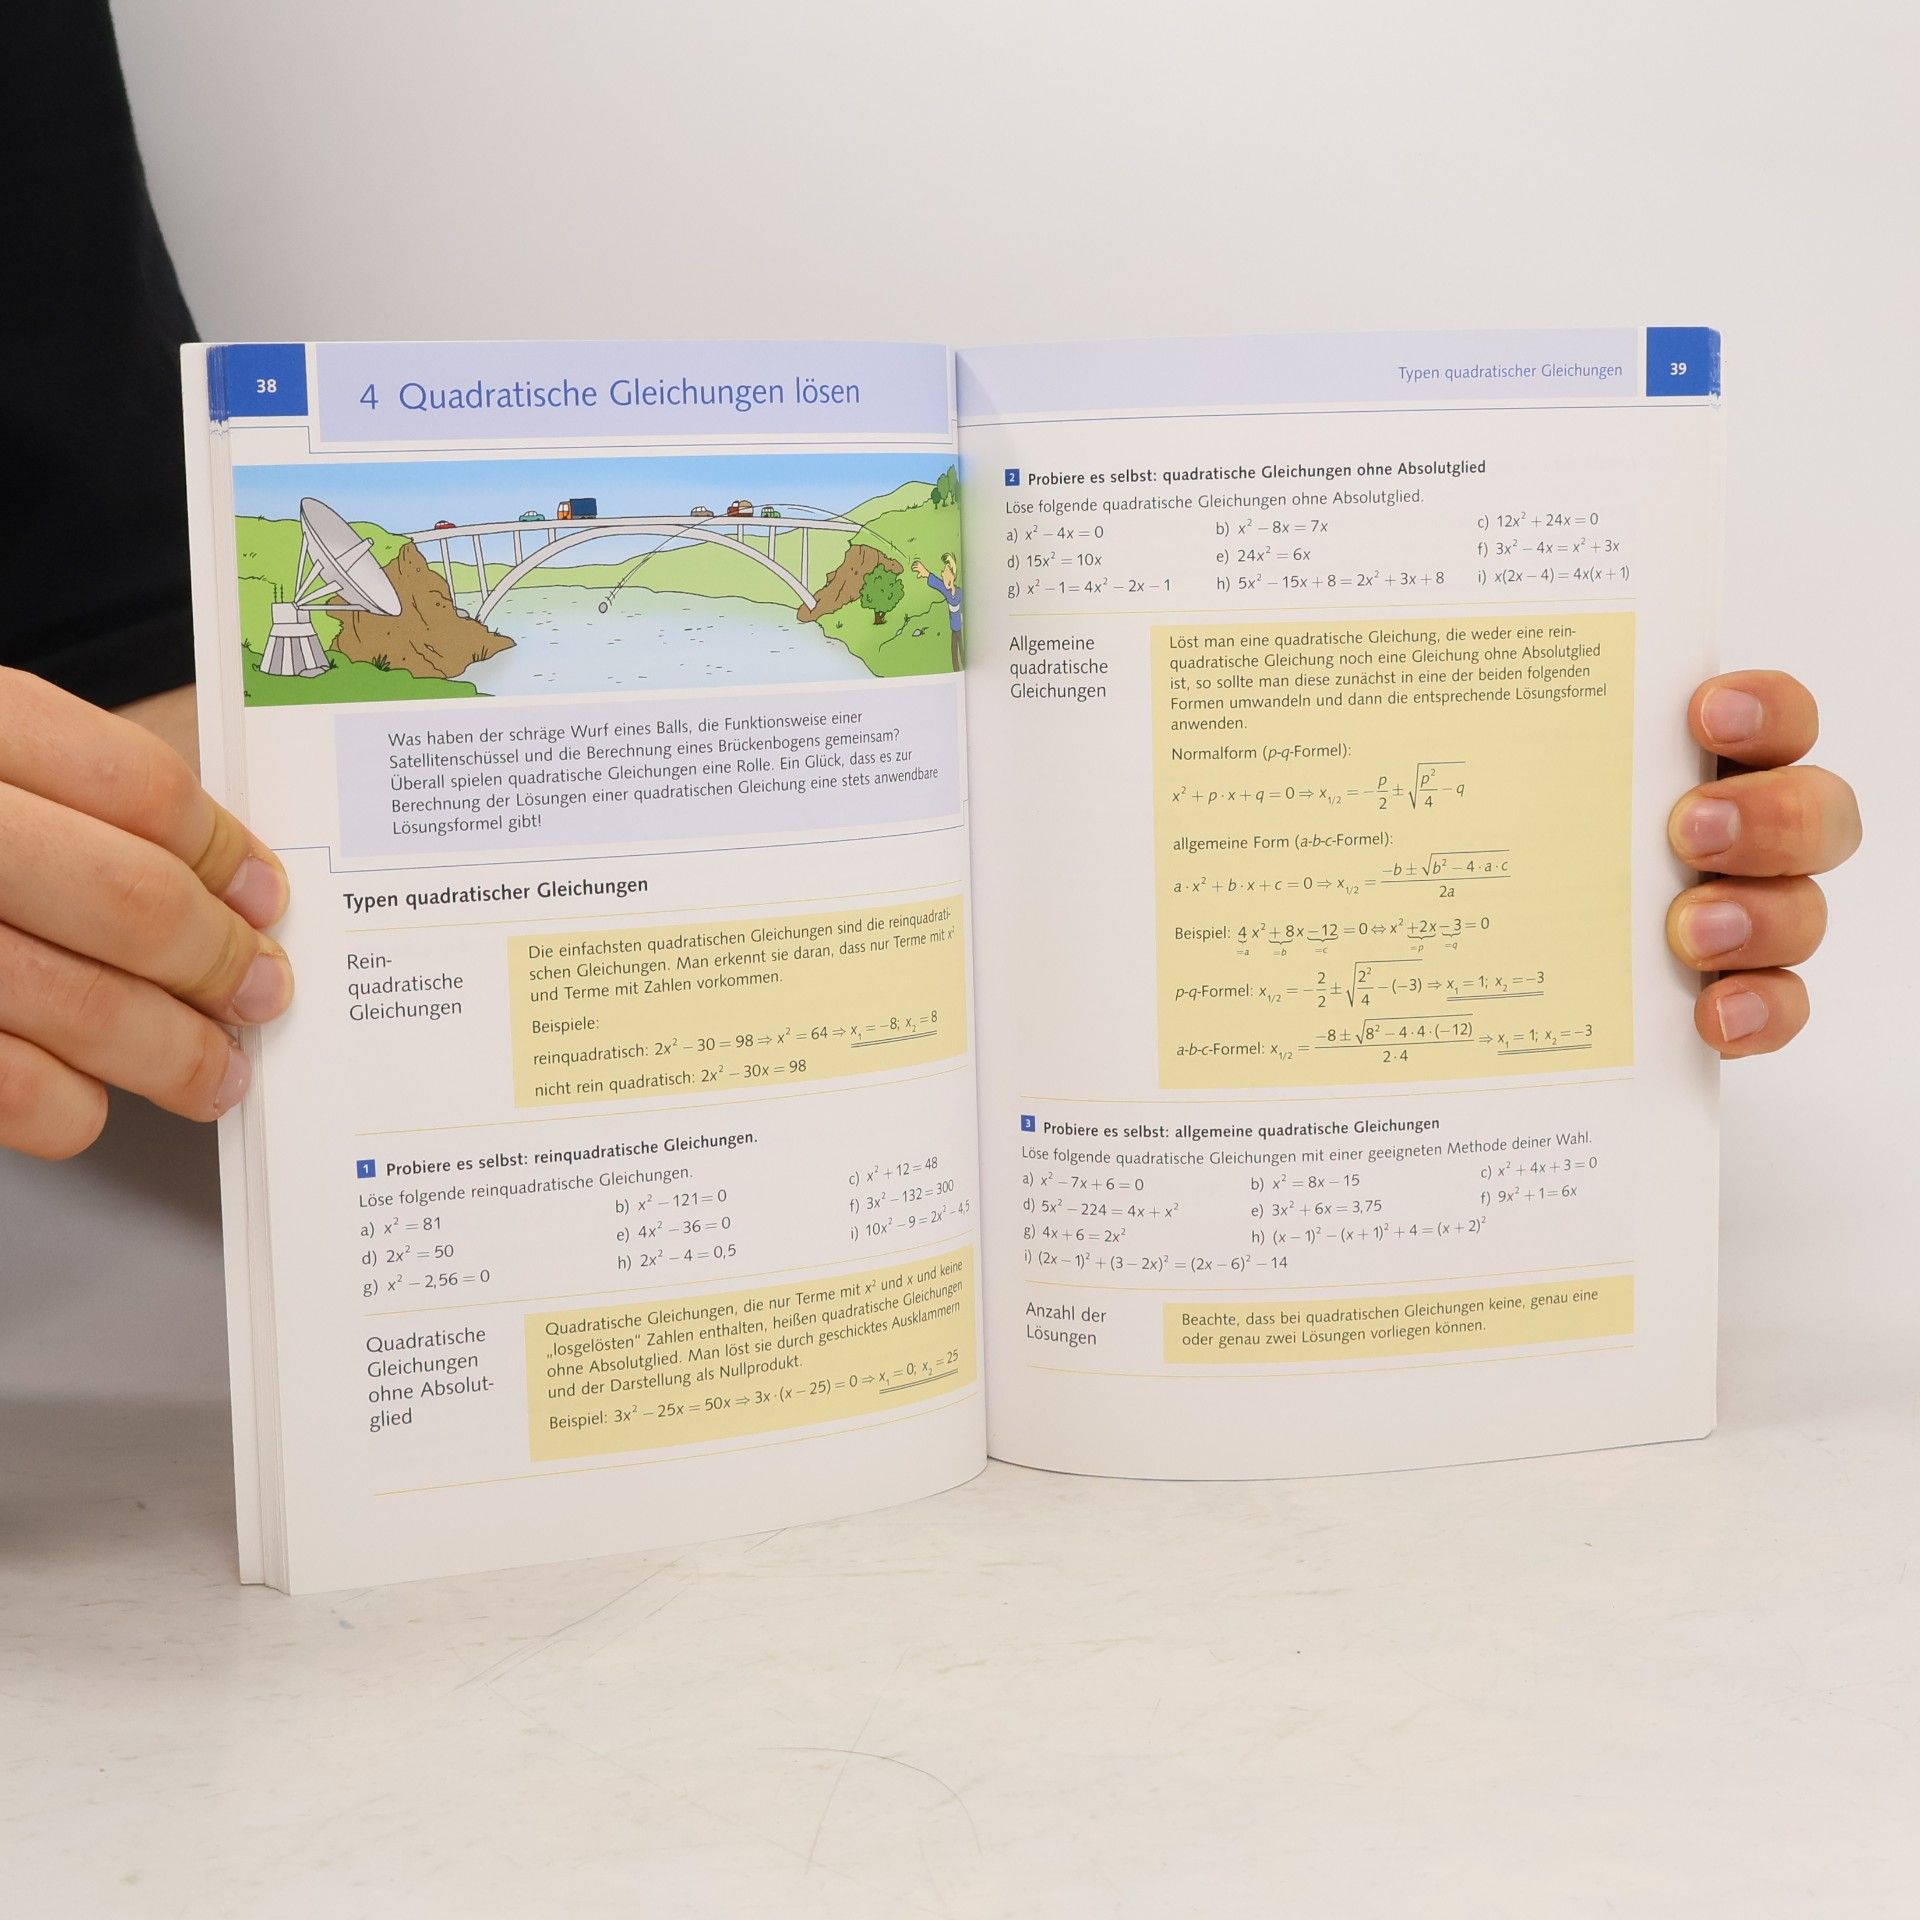 38
4 Quadratische Gleichungen lösen
Was haben der schräge Wurf eines Balls, die Funktionsweise einer
Satellitenschüssel und die Berechnung eines Brückenbogens gemeinsam?
Überall spielen quadratische Gleichungen eine Rolle. Ein Glück, dass es zur
Berechnung der Lösungen einer quadratischen Gleichung eine stets anwendbare
Lösungsformel gibt!
Typen quadratischer Gleichungen
Rein-
quadratische
Gleichungen
Die einfachsten quadratischen Gleichungen sind die reinquadrati-
schen Gleichungen. Man erkennt sie daran, dass nur Terme mit x²
und Terme mit Zahlen vorkommen.
Beispiele:
reinquadratisch: 2x² − 30 = 98 ⇒ x² = 64 ⇒ x₁ = −8; x₂ = 8
nicht rein quadratisch: 2x² − 30x = 98
1 Probiere es selbst: reinquadratische Gleichungen.
Löse folgende reinquadratische Gleichungen.
a) x² = 81 b) x² − 121 = 0 c) x² + 12 = 48
d) 2x² = 50 e) 4x² − 36 = 0 f) 3x² − 132 = 300
g) x² − 2,56 = 0 h) 2x² − 4 = 0,5 i) 10x² − 9 = 2x² − 4,5
Quadratische
Gleichungen
ohne Absolut-
glied
Quadratische Gleichungen, die nur Terme mit x² und x und keine
„losgelösten“ Zahlen enthalten, heißen quadratische Gleichungen
ohne Absolutglied. Man löst sie durch geschicktes Ausklammern
und der Darstellung als Nullprodukt.
Beispiel: 3x² − 25x = 50x ⇒ 3x · (x − 25) = 0 ⇒ x₁ = 0; x₂ = 25
Typen quadratischer Gleichungen
39
2 Probiere es selbst: quadratische Gleichungen ohne Absolutglied
Löse folgende quadratische Gleichungen ohne Absolutglied.
a) x² − 4x = 0 b) x² − 8x = 7x c) 12x² + 24x = 0
d) 15x² = 10x e) 24x² = 6x f) 3x² − 4x = x² + 3x
g) x² − 1 = 4x² − 2x − 1 h) 5x² − 15x + 8 = 2x² + 3x + 8 i) x(2x − 4) = 4x(x + 1)
Allgemeine
quadratische
Gleichungen
Löst man eine quadratische Gleichung, die weder eine rein-
quadratische Gleichung noch eine Gleichung ohne Absolutglied
ist, so sollte man diese zunächst in eine der beiden folgenden
Formen umwandeln und dann die entsprechende Lösungsformel
anwenden.
Normalform (p-q-Formel):
x² + p · x + q = 0 ⇒ x₁/₂ = −p/2 ± √(p²/4 − q)
allgemeine Form (a-b-c-Formel):
a · x² + b · x + c = 0 ⇒ x₁/₂ = (−b ± √(b² − 4 · a · c))/2a
Beispiel: 4 x² + 8x − 12 = 0 ⇔ x² + 2x − 3 = 0
=a =b =c =p =q
p-q-Formel: x₁/₂ = −2/2 ± √(2²/4 − (−3)) ⇒ x₁ = 1; x₂ = −3
a-b-c-Formel: x₁/₂ = (−8 ± √(8² − 4 · 4 · (−12)))/(2 · 4) ⇒ x₁ = 1; x₂ = −3
3 Probiere es selbst: allgemeine quadratische Gleichungen
Löse folgende quadratische Gleichungen mit einer geeigneten Methode deiner Wahl.
a) x² − 7x + 6 = 0 b) x² = 8x − 15 c) x² + 4x + 3 = 0
d) 5x² − 224 = 4x + x² e) 3x² + 6x = 3,75 f) 9x² + 1 = 6x
g) 4x + 6 = 2x² h) (x − 1)² − (x + 1)² + 4 = (x + 2)²
i) (2x − 1)² + (3 − 2x)² = (2x − 6)² − 14
Anzahl der
Lösungen
Beachte, dass bei quadratischen Gleichungen keine, genau eine
oder genau zwei Lösungen vorliegen können.